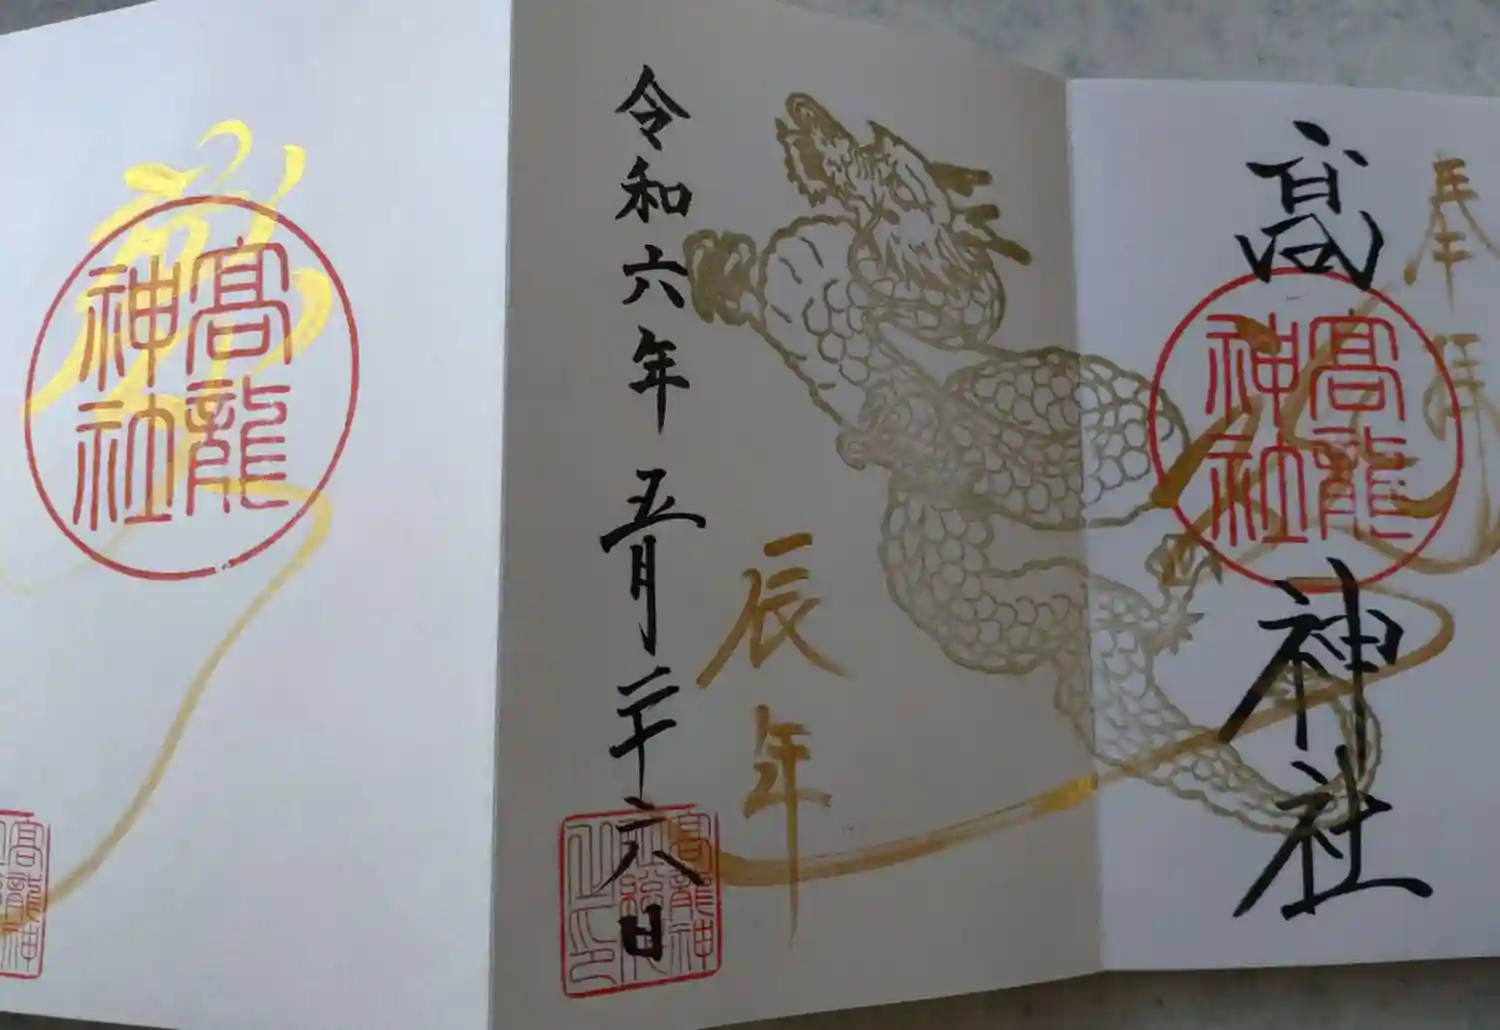 奉拝
高龍神社
高龍
神社
辰年
令和六年 五月二十六日
高龍神
龍
高龍
神社
高龍神